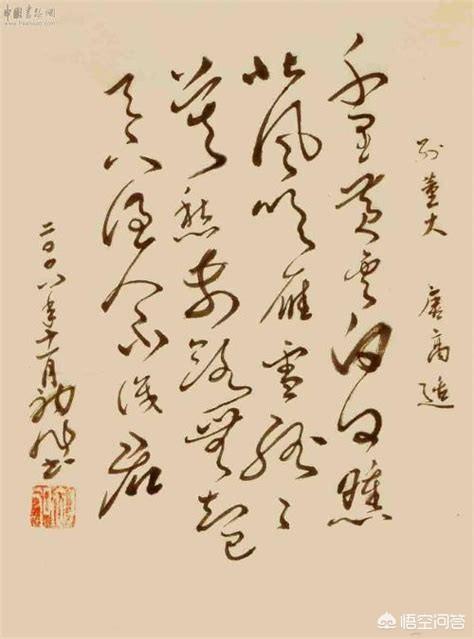 中國書法網
别董大 唐高適
千里黄雲白日曛
北風吹雁雪紛紛
莫愁前路無知己
天下誰人不識君
二〇〇八年十一月
悟空问答